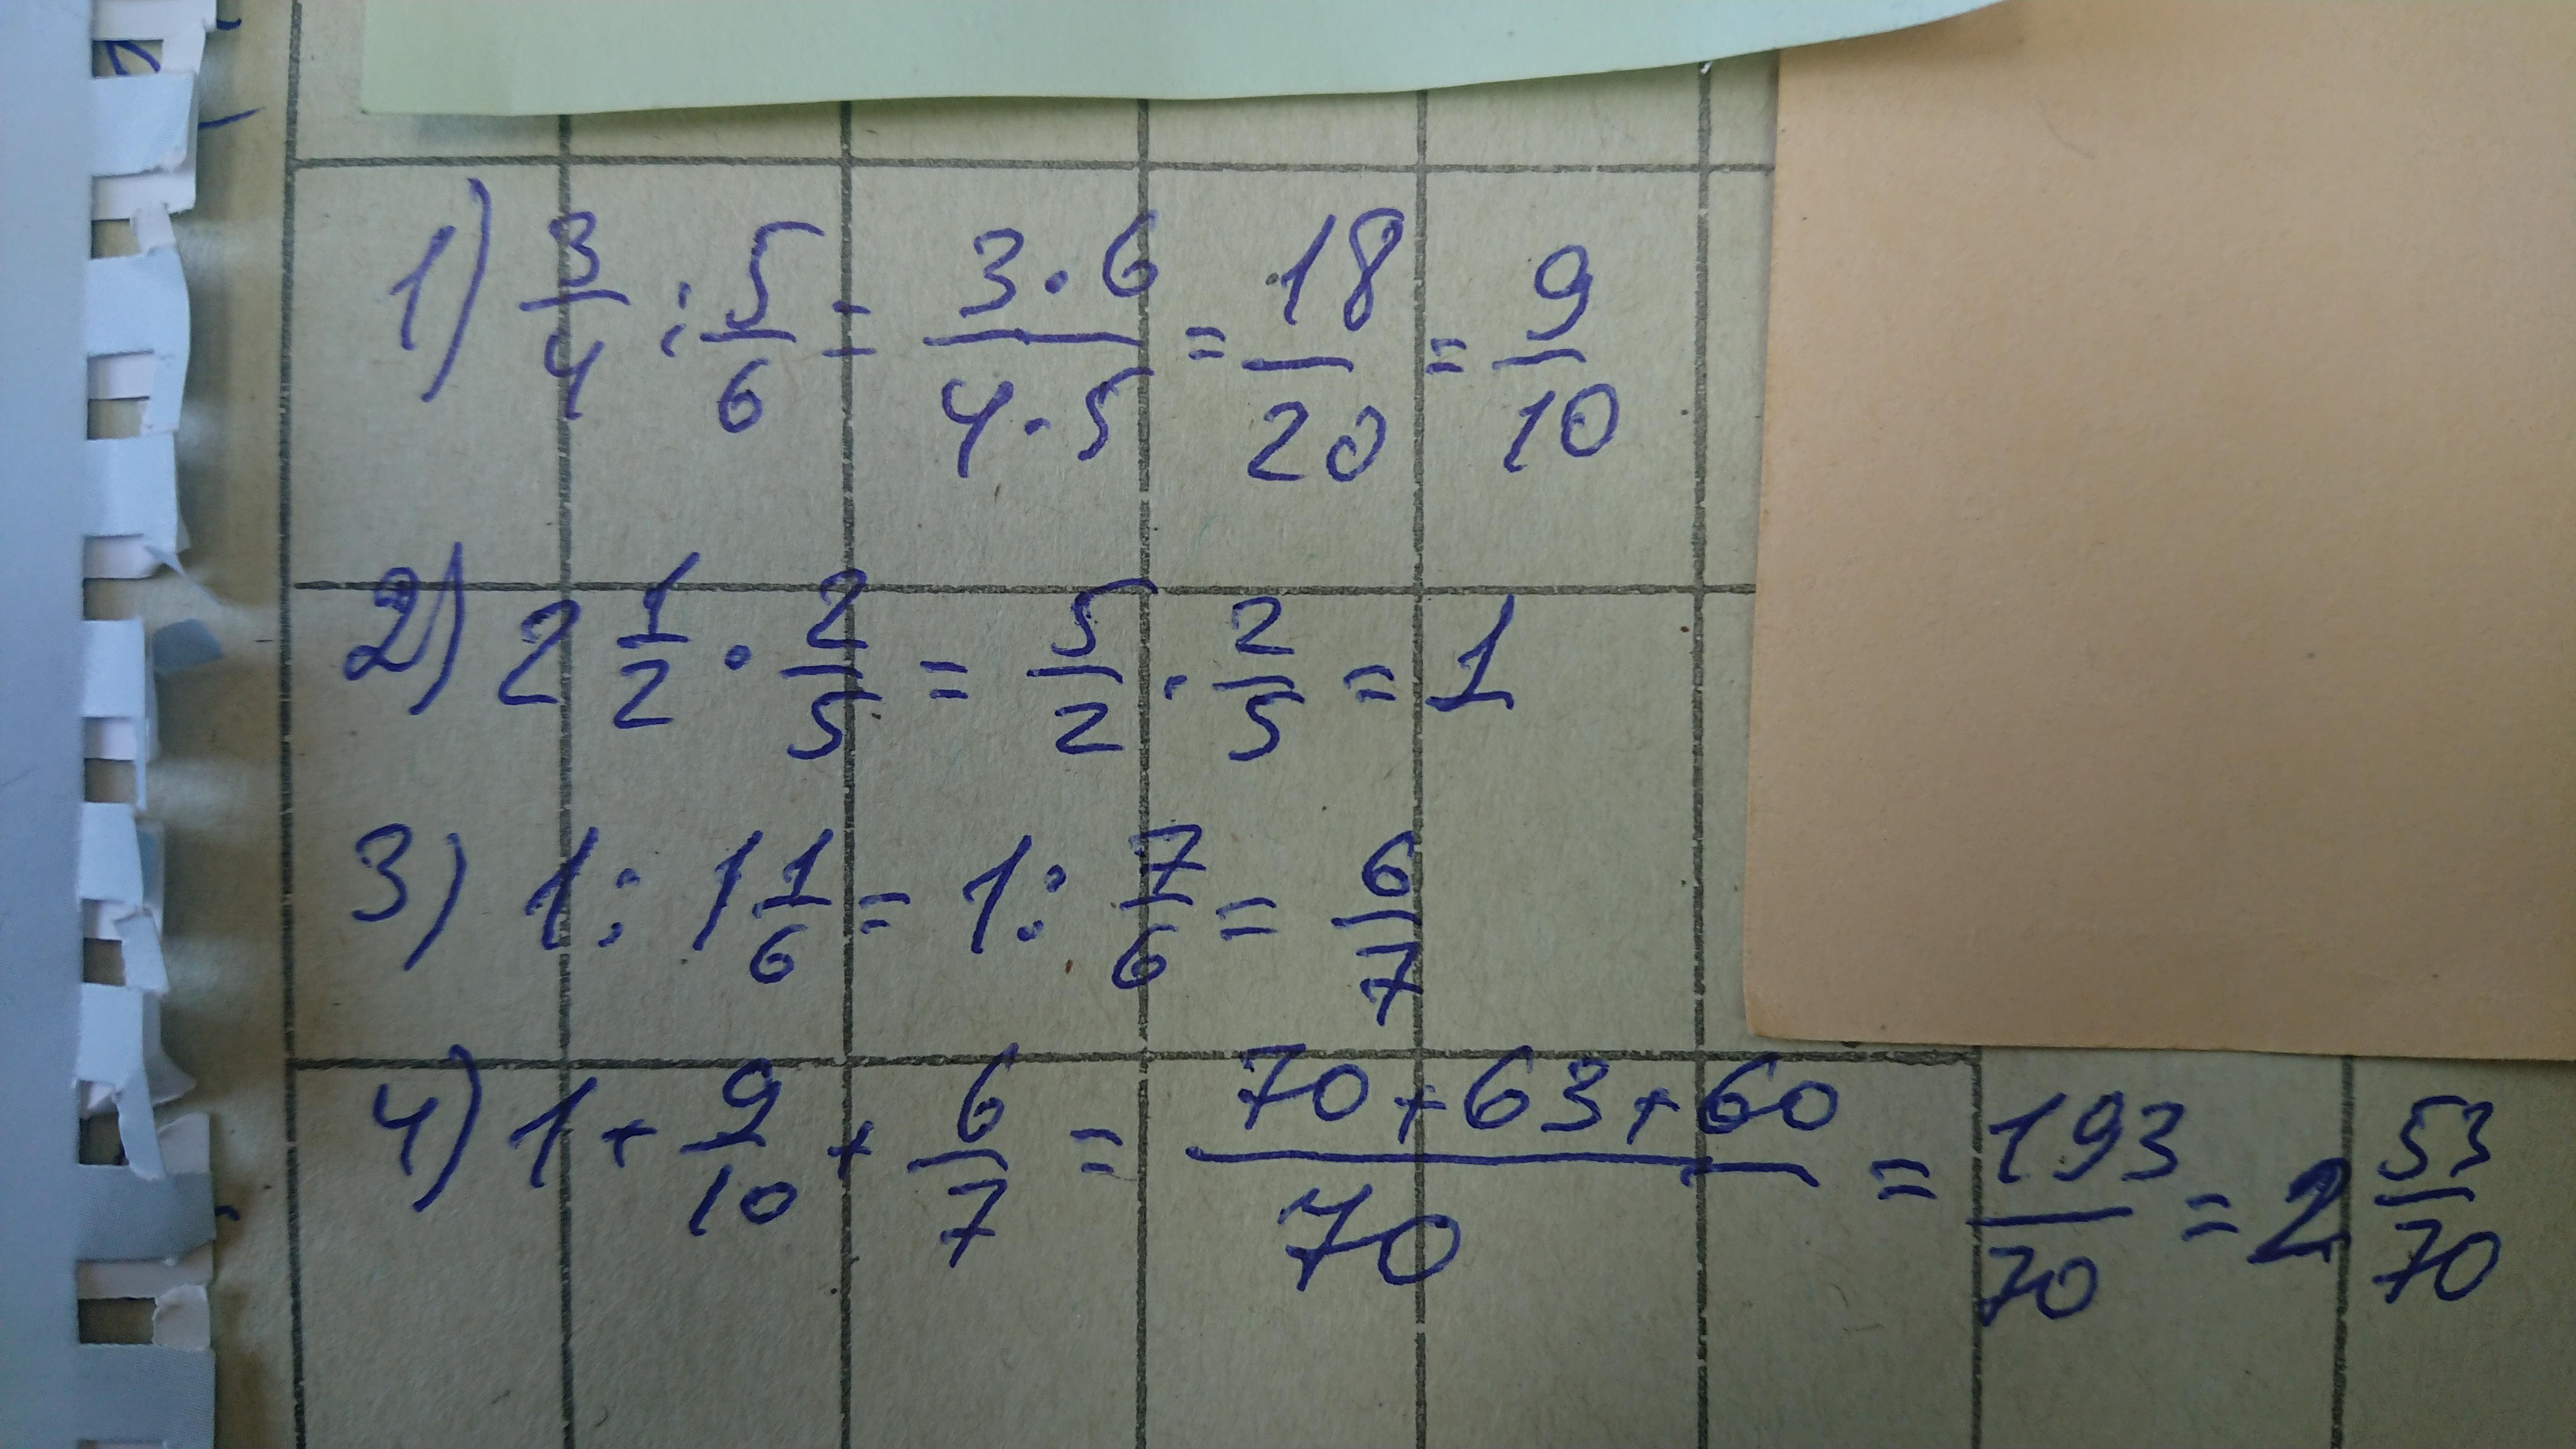 1) 3/4 : 5/6 = 3·6/4·5 = 18/20 = 9/10
2) 2 1/2 · 2/5 = 5/2 · 2/5 = 1
3) 1 : 1 1/6 = 1 : 7/6 = 6/7
4) 1 + 9/10 + 6/7 = 70+63+60/70 = 193/70 = 2 53/70